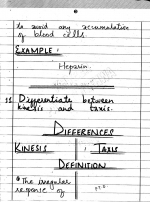 to avoid any accumulation
of blood cells.
EXAMPLE :
Heparin.
11. Differentiate between
kinesis and taxis.
DIFFERENCES
KINESIS : TAXIS
DEFINITION
The irregular
response of
P.T.O.